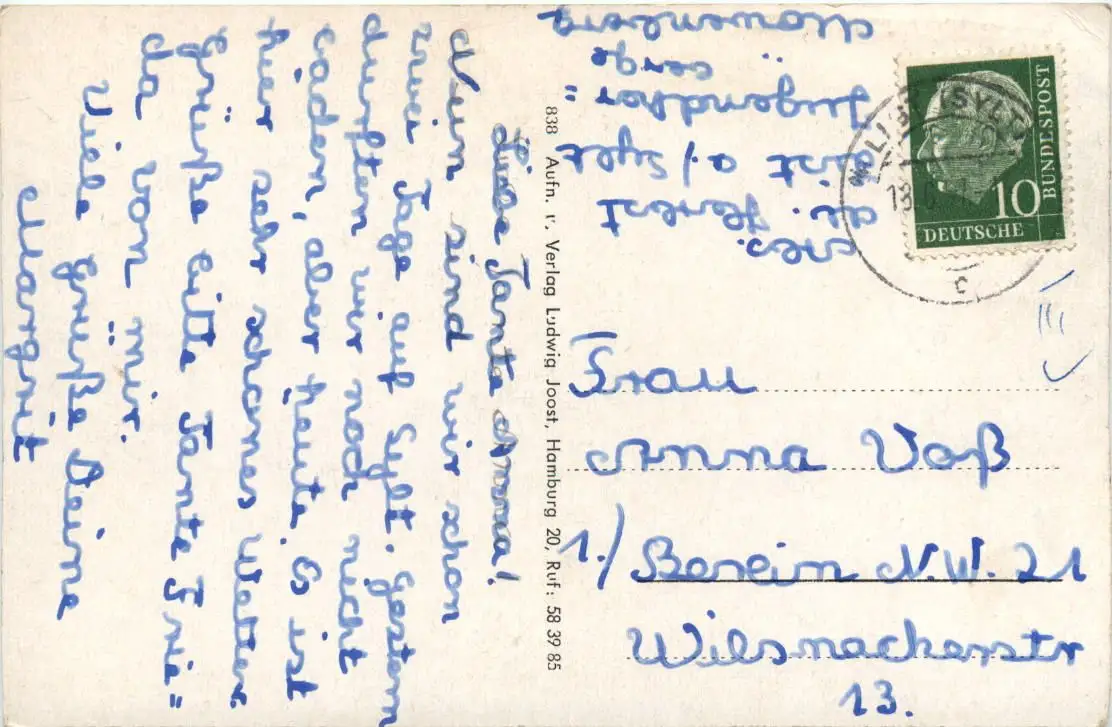 Liebe Tante Anna!
Nun sind wir schon
zwei Tage auf Sylt. Gestern
durften wir noch nicht
baden, aber heute. Es ist
hier sehr schönes Wetter.
Grüße bitte Tante Frie=
da von mir.
Viele Grüße Deine
Margrit
838 Aufn. u. Verlag Ludwig Joost, Hamburg 20, Ruf: 58 39 85
Abs.
a. Sylt
Jugendher=
berge
DEUTSCHE
BUNDESPOST
10
(SYLT)
c
Frau
Anna Voß
1./ Berlin N.W. 21
Wilsnackerstr
13.